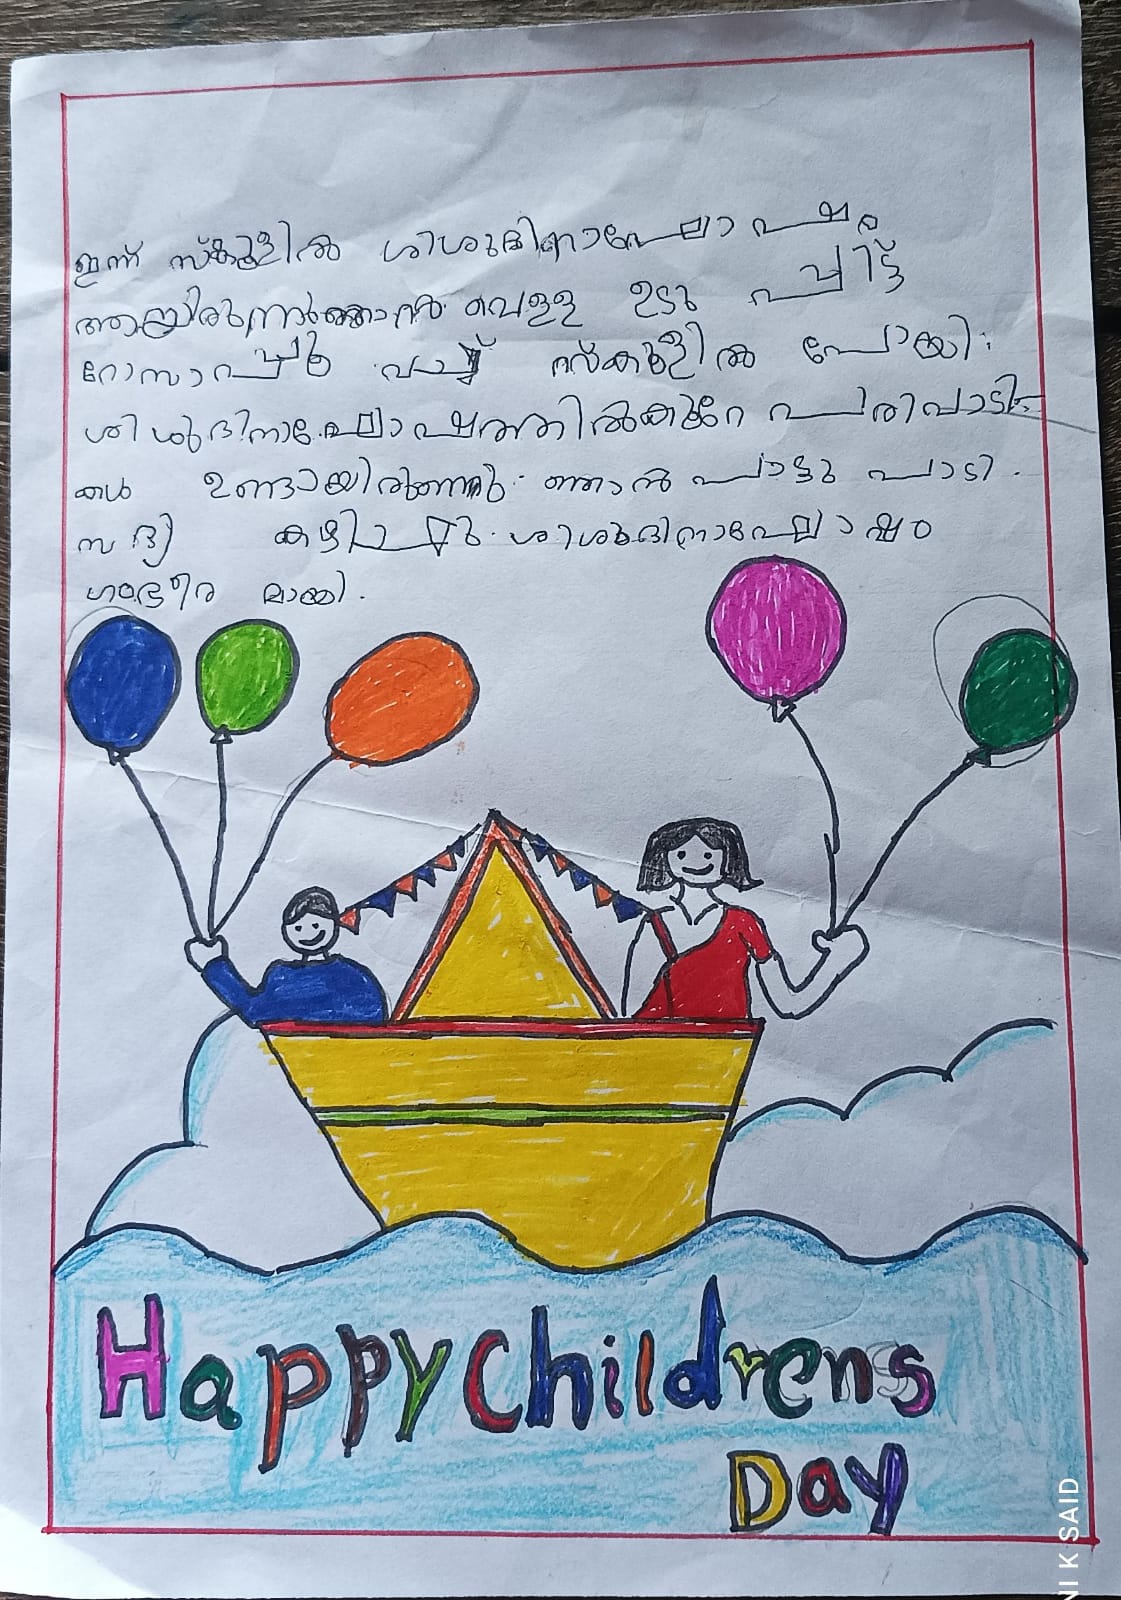 ഇന്ന് സ്കൂളിൽ ശിശുദിനാഘോഷം
ആയിരുന്നു. ഞാൻ വെള്ള ഉടുപ്പിട്ട്
റോസാപ്പൂ വച്ച് സ്കൂളിൽ പോയി.
ശിശുദിനാഘോഷത്തിൽ കുറേ പരിപാടി-
കൾ ഉണ്ടായിരുന്നു. ഞാൻ പാട്ടു പാടി.
സദ്യ കഴിച്ചു. ശിശുദിനാഘോഷം
ഗംഭീര മാക്കി.
Happy Childrens
Day
NI K SAID